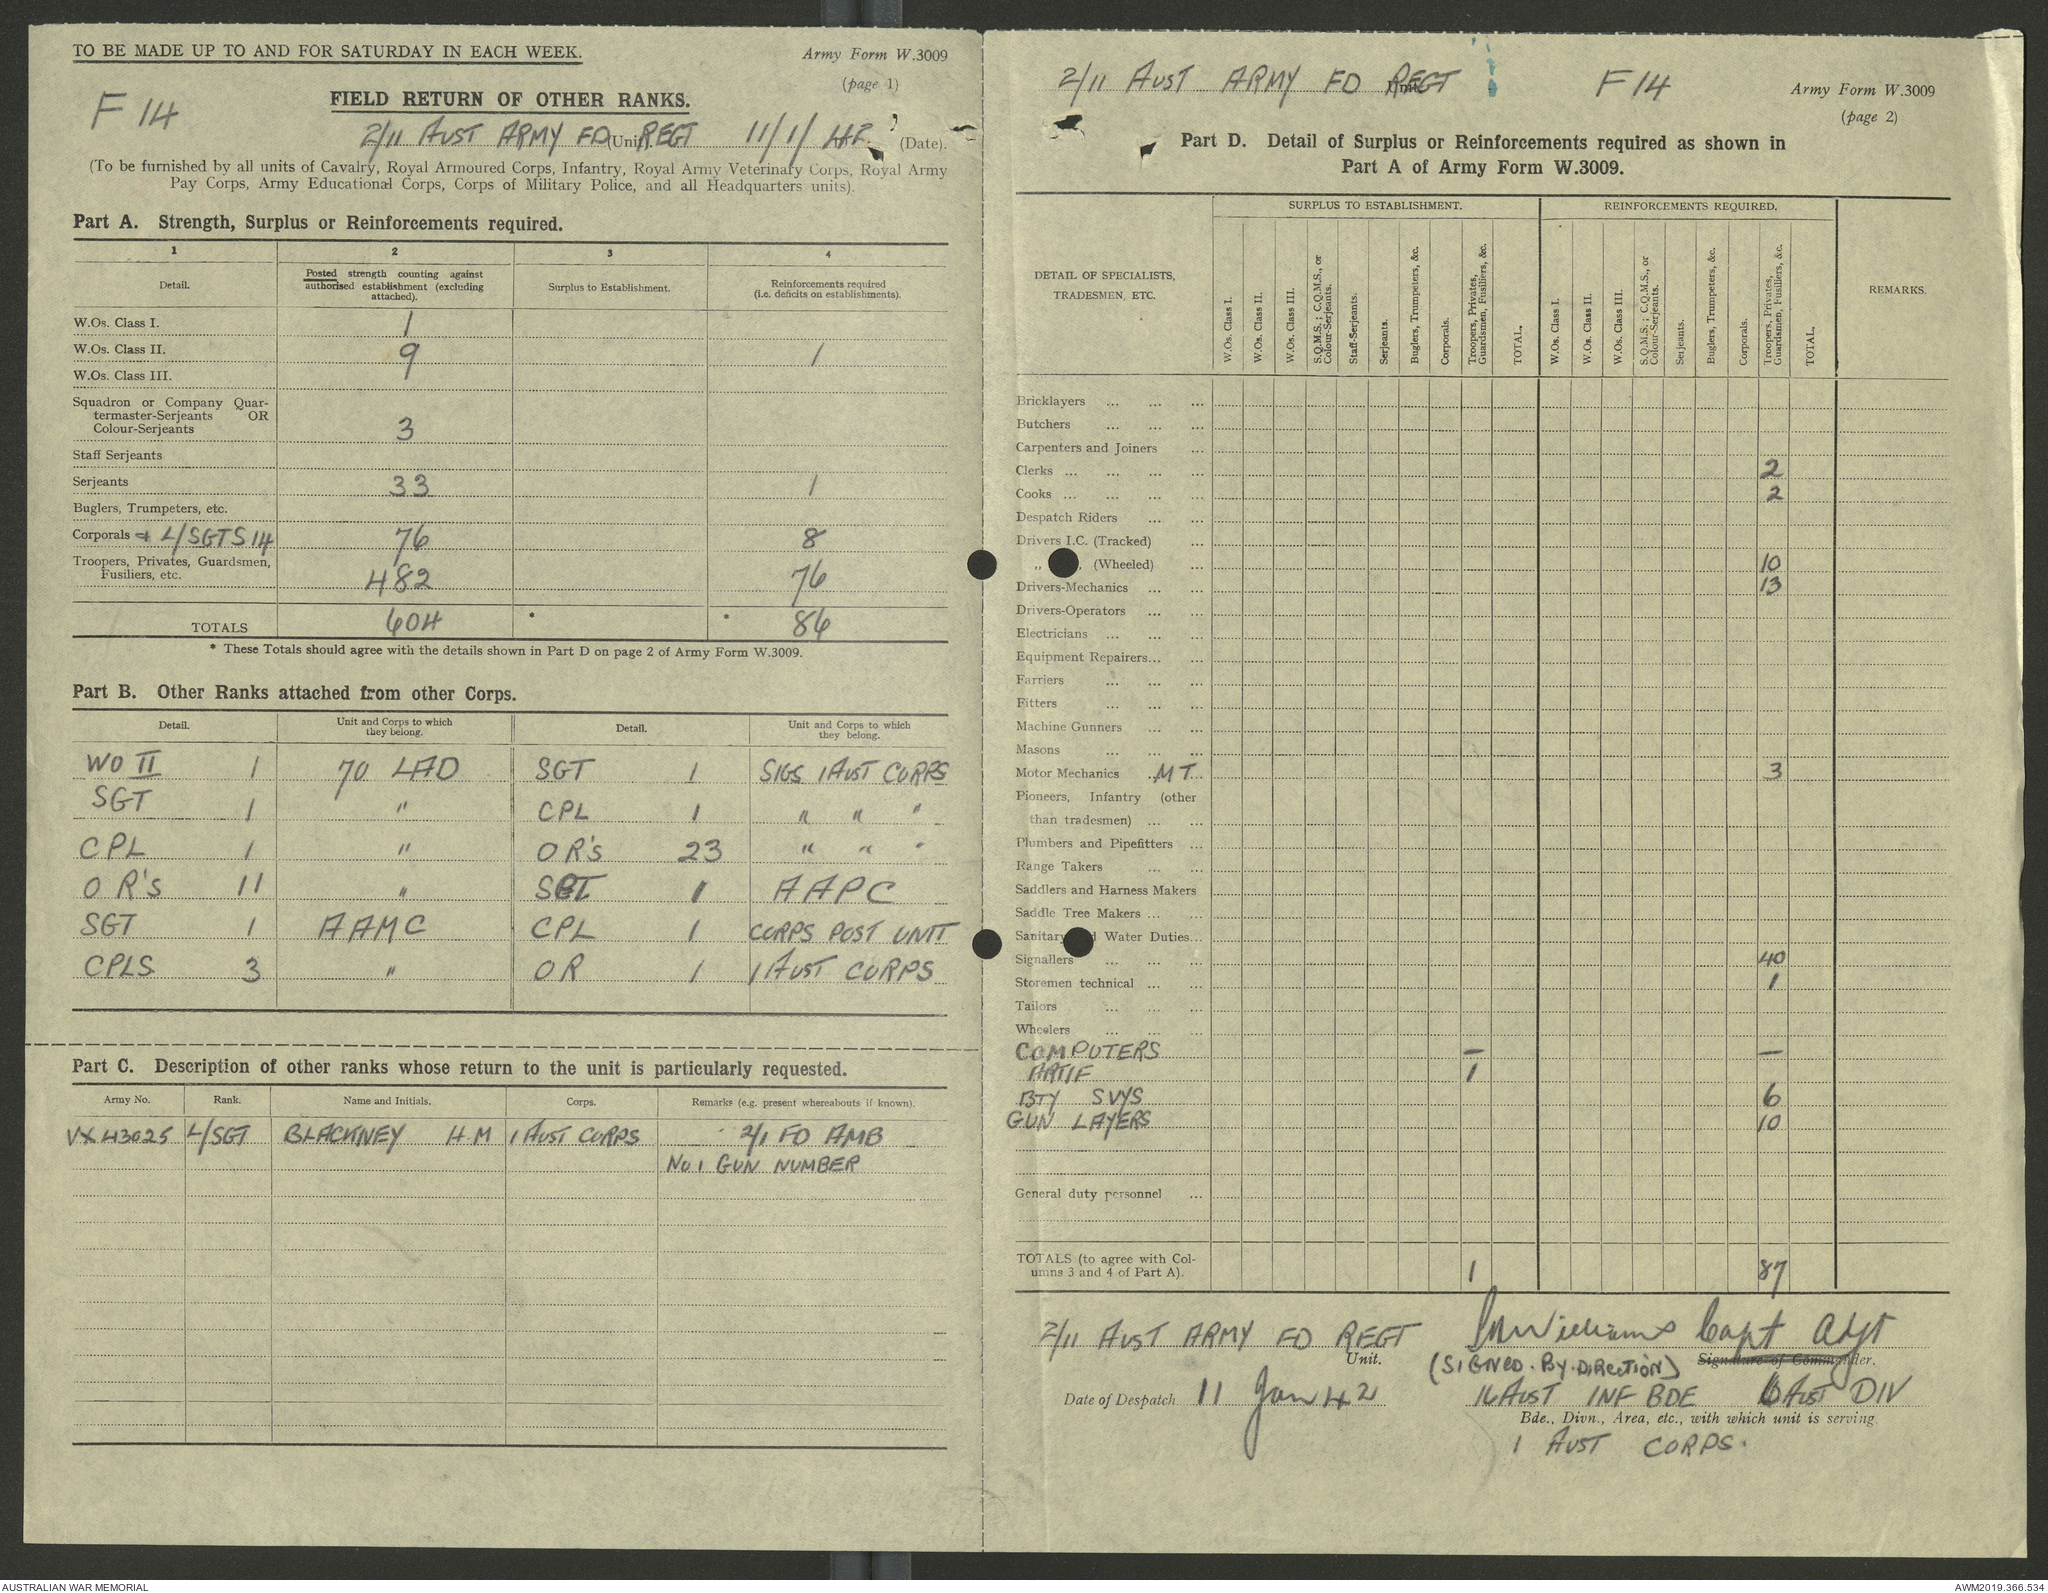 TO BE MADE UP TO AND FOR SATURDAY IN EACH WEEK.
Army Form W.3009
(page 1)
F 14
FIELD RETURN OF OTHER RANKS.
2/11 AUST ARMY FD (Unit) REGT 11/1/42 (Date).
(To be furnished by all units of Cavalry, Royal Armoured Corps, Infantry, Royal Army Veterinary Corps, Royal Army
Pay Corps, Army Educational Corps, Corps of Military Police, and all Headquarters units).
Part A. Strength, Surplus or Reinforcements required.
1 2 3 4
Detail. Posted strength counting against authorised establishment (excluding attached). Surplus to Establishment. Reinforcements required (i.e. deficits on establishments).
W.Os. Class I. 1
W.Os. Class II. 9 1
W.Os. Class III.
Squadron or Company Quar-
termaster-Serjeants OR
Colour-Serjeants 3
Staff Serjeants
Serjeants 33 1
Buglers, Trumpeters, etc.
Corporals + L/SGTS 14 76 8
Troopers, Privates, Guardsmen,
Fusiliers, etc. 482 76
TOTALS 604 * * 86
* These Totals should agree with the details shown in Part D on page 2 of Army Form W.3009.
Part B. Other Ranks attached from other Corps.
Detail. Unit and Corps to which they belong. Detail. Unit and Corps to which they belong.
WO II 1 70 LAD SGT 1 SIGS 1 AUST CORPS
SGT 1 " CPL 1 " " "
CPL 1 " OR'S 23 " " "
OR'S 11 " SGT 1 AAPC
SGT 1 AAMC CPL 1 CORPS POST UNIT
CPLS 3 " OR 1 1 AUST CORPS
Part C. Description of other ranks whose return to the unit is particularly requested.
Army No. Rank. Name and Initials. Corps. Remarks (e.g. present whereabouts if known).
VX43025 L/SGT BLACKNEY H M 1 AUST CORPS 2/1 FD AMB
NO 1 GUN NUMBER
2/11 AUST ARMY FD REGT F 14
Army Form W.3009
(page 2)
Part D. Detail of Surplus or Reinforcements required as shown in
Part A of Army Form W.3009.
SURPLUS TO ESTABLISHMENT. REINFORCEMENTS REQUIRED.
DETAIL OF SPECIALISTS,
TRADESMEN, ETC.
W.Os. Class I.
W.Os. Class II.
W.Os. Class III.
S.Q.M.S.; C.Q.M.S., or Colour-Serjeants.
Staff-Serjeants.
Serjeants.
Buglers, Trumpeters, &c.
Corporals.
Troopers, Privates, Guardsmen, Fusiliers, &c.
TOTAL.
W.Os. Class I.
W.Os. Class II.
W.Os. Class III.
S.Q.M.S.; C.Q.M.S., or Colour-Serjeants.
Serjeants.
Buglers, Trumpeters, &c.
Corporals.
Troopers, Privates, Guardsmen, Fusiliers, &c.
TOTAL.
REMARKS.
Bricklayers ... ... ...
Butchers ... ... ...
Carpenters and Joiners ...
Clerks ... ... ... ... 2
Cooks ... ... ... ... 2
Despatch Riders ... ...
Drivers I.C. (Tracked) ...
" (Wheeled) ... 10
Drivers-Mechanics ... ... 13
Drivers-Operators ... ...
Electricians ... ... ...
Equipment Repairers... ...
Farriers ... ... ...
Fitters ... ... ...
Machine Gunners ... ...
Masons ... ... ...
Motor Mechanics M T 3
Pioneers, Infantry (other
than tradesmen) ... ...
Plumbers and Pipefitters ...
Range Takers ... ...
Saddlers and Harness Makers
Saddle Tree Makers ... ...
Sanitary and Water Duties...
Signallers ... ... ... 40
Storemen technical ... ... 1
Tailors ... ... ...
Wheelers ... ... ...
COMPUTERS — —
ARTIF 1
BTY SVYS 6
GUN LAYERS 10
General duty personnel ...
TOTALS (to agree with Col-
umns 3 and 4 of Part A). 1 87
2/11 AUST ARMY FD REGT Williams Capt Adjt
Unit. (SIGNED BY DIRECTION) Signature of Commander.
Date of Despatch 11 Jan 42 16 AUST INF BDE 6 AUST DIV
Bde., Divn., Area, etc., with which unit is serving
1 AUST CORPS.
AUSTRALIAN WAR MEMORIAL
AWM2019.366.534